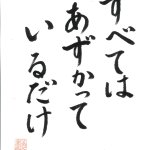 すべては
あずかって
いるだけ